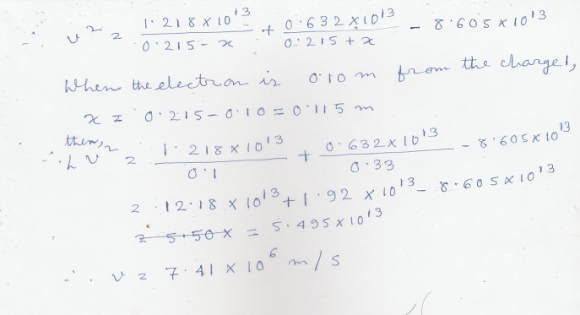 ∴ v² = 1.218 x 10¹³ / 0.215 - x + 0.632 x 10¹³ / 0.215 + x - 8.605 x 10¹³
When the electron is 0.10 m from the charge 1,
x = 0.215 - 0.10 = 0.115 m
then,
∴ v² = 1.218 x 10¹³ / 0.1 + 0.632 x 10¹³ / 0.33 - 8.605 x 10¹³
= 12.18 x 10¹³ + 1.92 x 10¹³ - 8.605 x 10¹³
= 5.50 x = 5.495 x 10¹³
∴ v = 7.41 x 10⁶ m/s